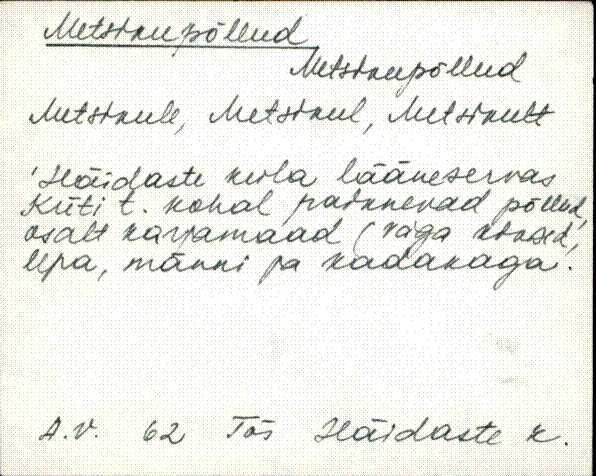 Metsikupõllud
Metsikupõllud
Metsikule, Metsikul, Metsikult
Häidaste küla lääneservas
Küti t. kohal paiknevad põllud,
osalt karjamaad (väga kivised,
lepa, männi ja kadakaga.
A.V. 62 Tõs Häidaste k.